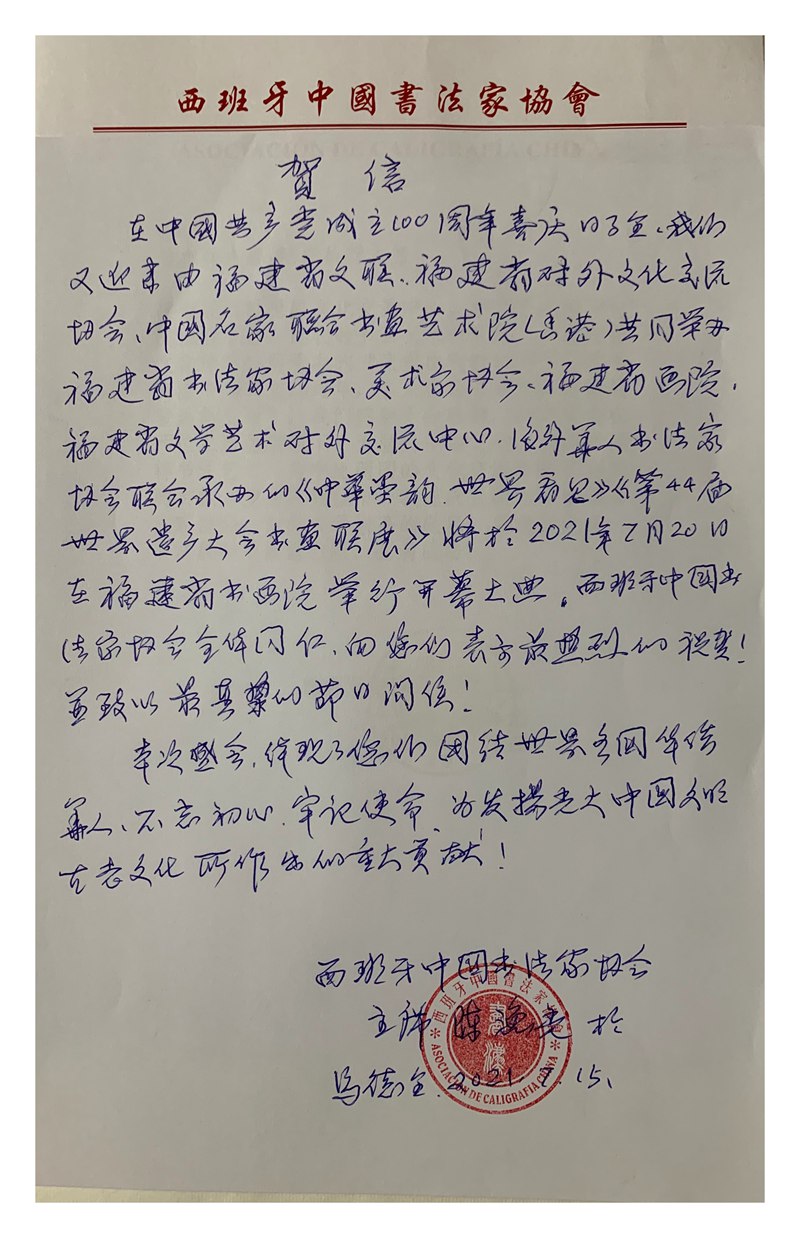 西班牙中國書法家協會
贺信
在中國共产党成立100周年喜庆日子里、我们
又迎来由福建省文联、福建省对外文化交流
协会、中国名家联合书画艺术院(香港)共同举办
福建省书法家协会、美术家协会、福建省画院、
福建省文学艺术对外交流中心、海外華人书法家
协会联合承办的《中華墨韵、世界看见》《第44届
世界遗产大会书画联展》将於2021年7月20日
在福建省书画院举行开幕大典。西班牙中国书
法家协会全体同仁、向您们表示最热烈的祝贺!
並致以最真挚的节日问候!
本次盛会、体现了您们团结世界各国华侨
華人、不忘初心、牢记使命、为发揚光大中国文明
古老文化所作出的重大贡献!
西班牙中国书法家协会
主席 陈 於
马德里.2021.7.15.
西班牙中國書法家協會
書法
ASOCIACION DE CALIGRAFIA CHINA